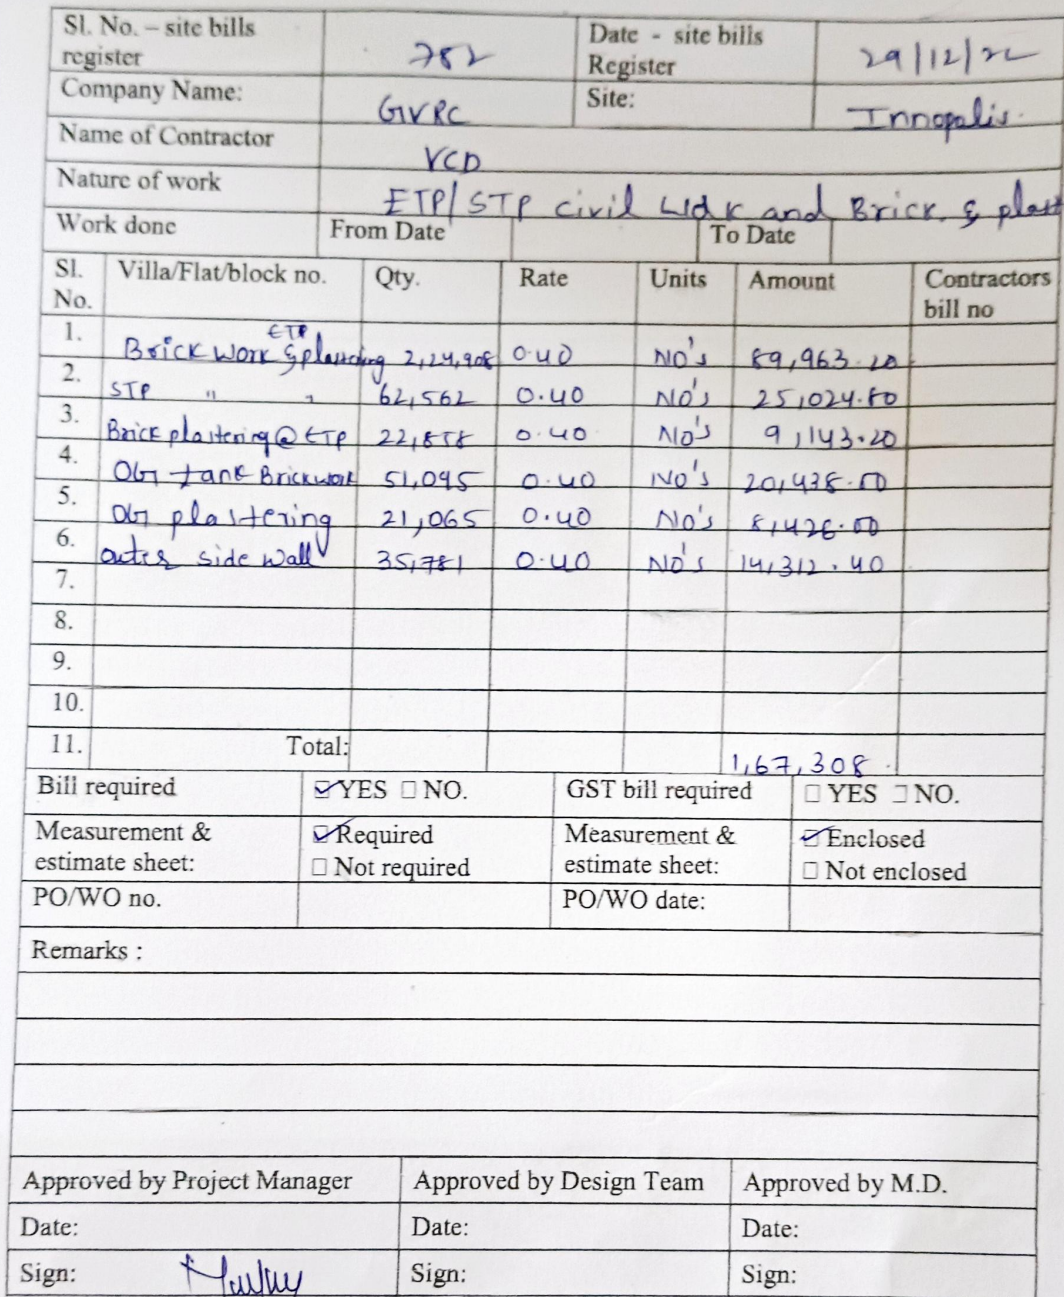 Sl. No. – site bills register 782 Date - site bills Register 29/12/22
Company Name: GVRC Site: Innopolis.
Name of Contractor VCD
Nature of work ETP/STP civil work and Brick & plast
Work done From Date To Date
Sl. No. Villa/Flat/block no. Qty. Rate Units Amount Contractors bill no
1. Brick work ETP & plastering 2,24,908 0.40 NO's 89,963.20
2. STP " " 62,562 0.40 NO's 25,024.80
3. Brick plastering @ ETP 22,858 0.40 NO's 9,143.20
4. OG tank Brickwork 51,095 0.40 NO's 20,438.00
5. OG plastering 21,065 0.40 NO's 8,426.00
6. outer side wall 35,781 0.40 NO's 14,312.40
7.
8.
9.
10.
11. Total: 1,67,308.
Bill required ☑YES ☐NO. GST bill required ☐ YES ☐NO.
Measurement & estimate sheet: ☑Required ☐ Not required Measurement & estimate sheet: ☑Enclosed ☐ Not enclosed
PO/WO no. PO/WO date:
Remarks :
Approved by Project Manager Approved by Design Team Approved by M.D.
Date: Date: Date:
Sign: Sign: Sign: